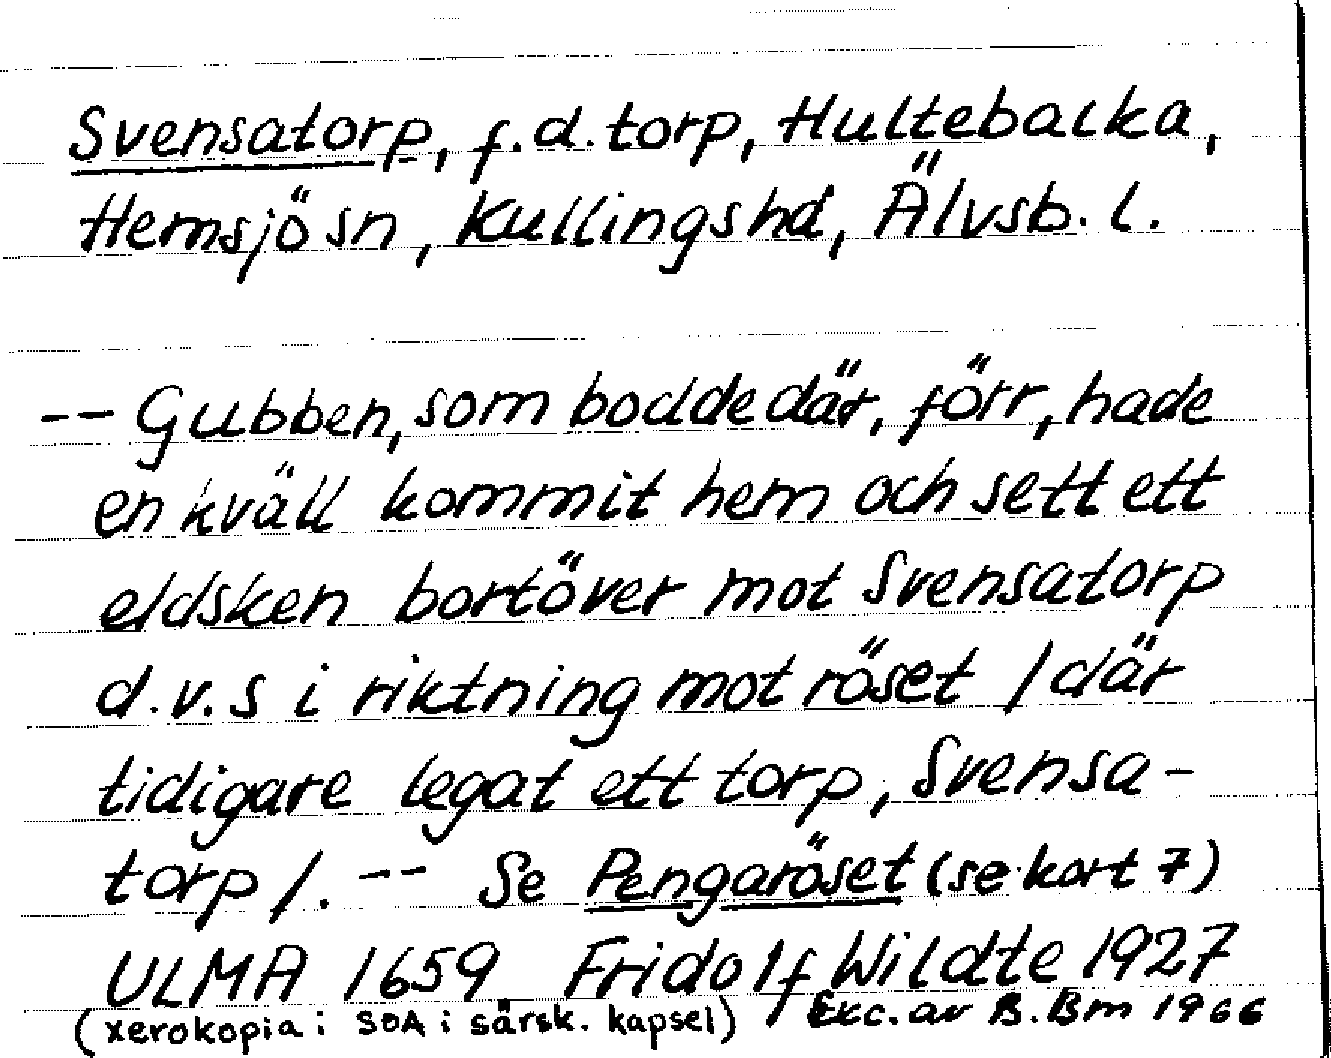 Svensatorp, f.d. torp, Hultebacka,
Hemsjö sn, Kullings hd, Älvsb. l.
-- Gubben, som bodde där, förr, hade
en kväll kommit hem och sett ett
eldsken bortöver mot Svensatorp
d.v.s i riktning mot röset / där
tidigare legat ett torp, Svensa-
torp /. -- Se Pengaröset (se kort 7)
ULMA 1659 Fridolf Wildte 1927
(xerokopia i SOA i särsk. kapsel) Exc. av B. Bm 1966